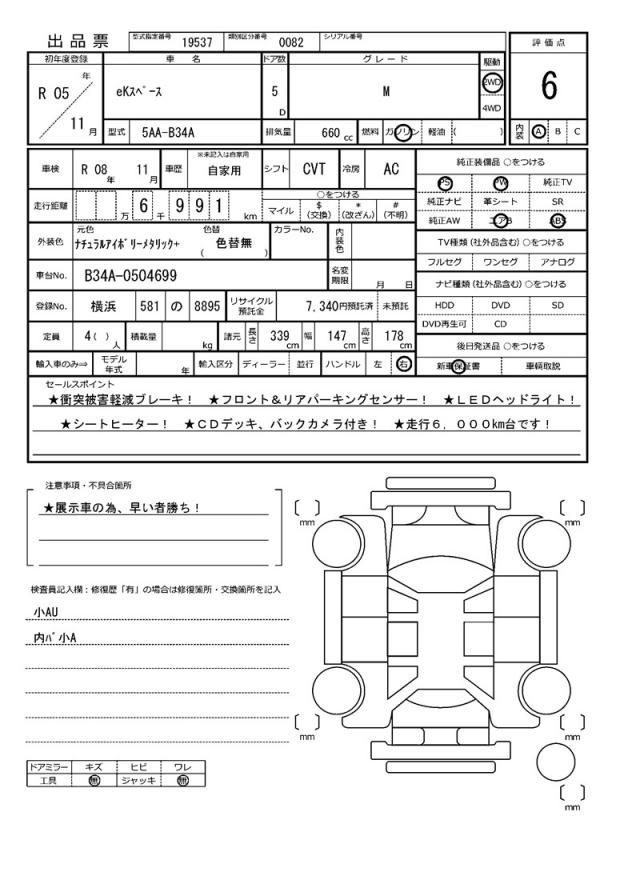 出品票 型式指定番号 19537 類別区分番号 0082 シリアル番号
初年度登録 車名 ドア数 グレード 駆動 評価点
R 05 年 11 月 eKスペース 5 D M 2WD 4WD 6
型式 5AA-B34A 排気量 660 cc 燃料 ガソリン 軽油 ( ) 内装 A B C
車検 R 08 年 11 月 車歴 ※未記入は自家用 自家用 シフト CVT 冷房 AC 純正装備品 ○をつける
PS PW 純正TV
走行距離 万 6 千 9 9 1 km ○をつける 純正ナビ 革シート SR
マイル $ (交換) * (改ざん) # (不明) 純正AW エアB ABS
外装色 元色 ナチュラルアイボリーメタリック+ 色替 ( 色替無 ) カラーNo. 内装色 TV種類 (社外品含む) ○をつける
フルセグ ワンセグ アナログ
車台No. B34A-0504699 名変期限 月 日 ナビ種類 (社外品含む) ○をつける
登録No. 横浜 581 の 8895 リサイクル預託金 7,340円預託済 未預託 HDD DVD SD
DVD再生可 CD
定員 4( ) 人 積載量 kg 諸元 長さ 339 cm 幅 147 cm 高さ 178 cm 後日発送品 ○をつける
輸入車のみ⇒ モデル年式 年 輸入区分 ディーラー 並行 ハンドル 左 右 新車保証書 車輌取説
セールスポイント
★衝突被害軽減ブレーキ! ★フロント&リアパーキングセンサー! ★LEDヘッドライト!
★シートヒーター! ★CDデッキ、バックカメラ付き! ★走行6,000km台です!
注意事項・不具合箇所
★展示車の為、早い者勝ち!
検査員記入欄:修復歴「有」の場合は修復箇所・交換箇所を記入
小AU
内バ小A
ドアミラー キズ ヒビ ワレ
工具 無 ジャッキ 無
mm
mm
mm
mm
mm